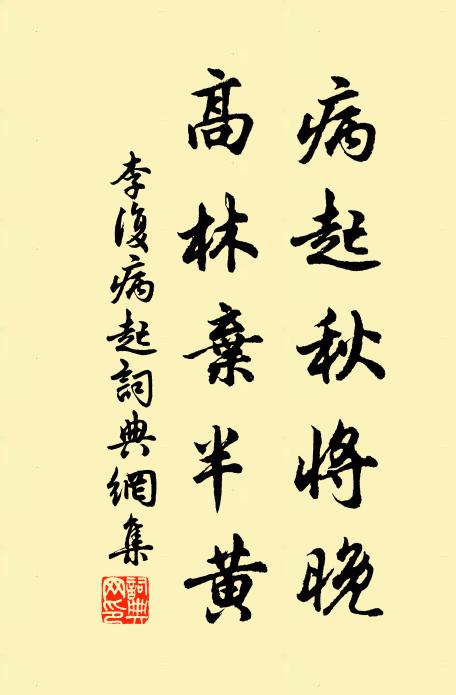 病起秋將晚
高林棄半黃
李復病起詞典網集
詞典網印